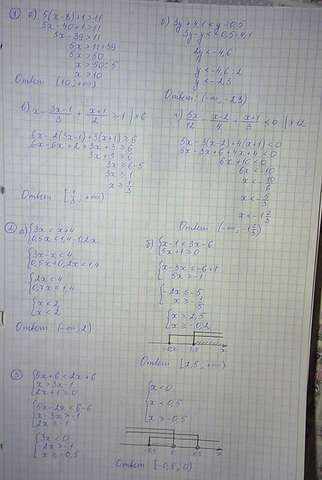 ① а) 5(x-8)+1>11
5x-40+1>11
5x-39>11
5x>11+39
5x>50
x>50:5
x>10
Ответ (10;+∞)
б) 3y+4,1<y-0,5
3y-y<-0,5-4,1
2y<-4,6
y<-4,6:2
y<-2,3
Ответ: (-∞;-2,3)
в) x - (3x-1)/3 + (x+1)/2 ≥ 1 |·6
6x-2(3x-1)+3(x+1)≥6
6x-6x+2+3x+3≥6
3x+5≥6
3x≥6-5
3x≥1
x≥1/3
Ответ [1/3;+∞)
5x/12 - (x-2)/4 + (x+1)/3 <0 |·12
5x-3(x-2)+4(x+1)<0
5x-3x+6+4x+4<0
6x+10<0
6x<-10
x<-10/6
x<-5/3
x<-1 2/3
Ответ (-∞;-1 2/3)
② а) {3x<x+4
0,5x<1,4-0,2x
{3x-x<4
0,5x+0,2x<1,4
{2x<4
0,7x<1,4
{x<2
x<2
Ответ (-∞;2)
б) {x-1<3x-6
5x+1≥0
{x-3x<-6+1
5x≥-1
{-2x<-5
x≥-1/5
{x>2,5
x≥-0,2
-0,2 2,5 x
Ответ (2,5;+∞)
③ {5x+6<2x+6
x>3x-1
2x+1≥0
{5x-2x<6-6
x-3x>-1
2x≥-1
{3x<0
-2x>-1
x≥-0,5
{x<0
x<0,5
x≥-0,5
-0,5 0 0,5 x
Ответ [-0,5;0)